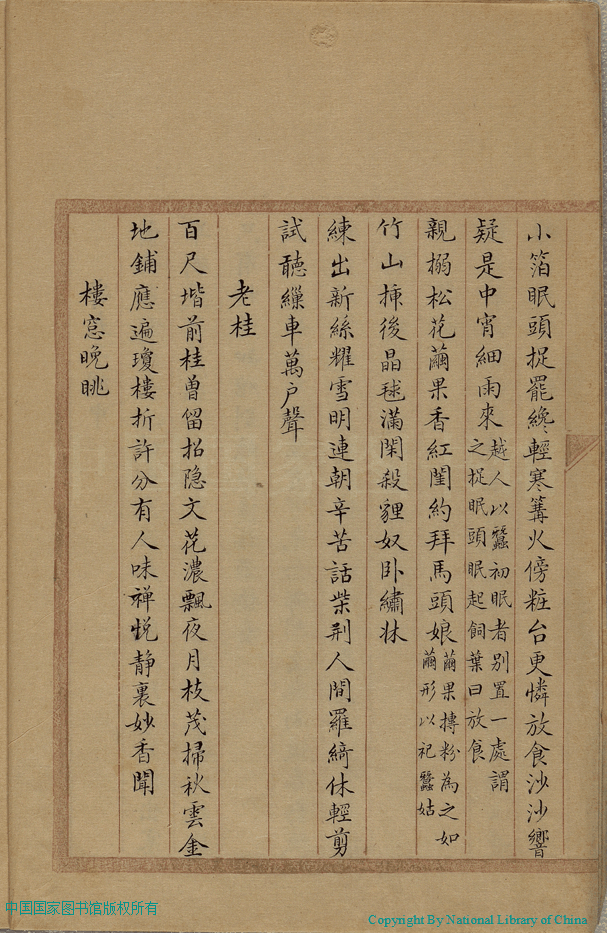 小箔眠頭捉罷纔輕寒篝火傍粧台更憐放食沙沙響
疑是中宵細雨來越人以蠶初眠者別置一處謂
之捉眠頭眠起飼葉曰放食
親搦松花繭果香紅閨約拜馬頭娘繭果摶粉為之如
繭形以祀蠶姑
竹山挿後晶毬滿閑殺貍奴卧繡牀
練出新絲耀雪明連朝辛苦話柴荆人間羅綺休輕剪
試聽繅車萬戶聲
老桂
百尺堦前桂曾留招隐文花濃飄夜月枝茂掃秋雲金
地鋪應遍瓊樓折許分有人味禅悅静裏妙香聞
樓窓晚眺
中国国家图书馆版权所有
Copyright By National Library of China